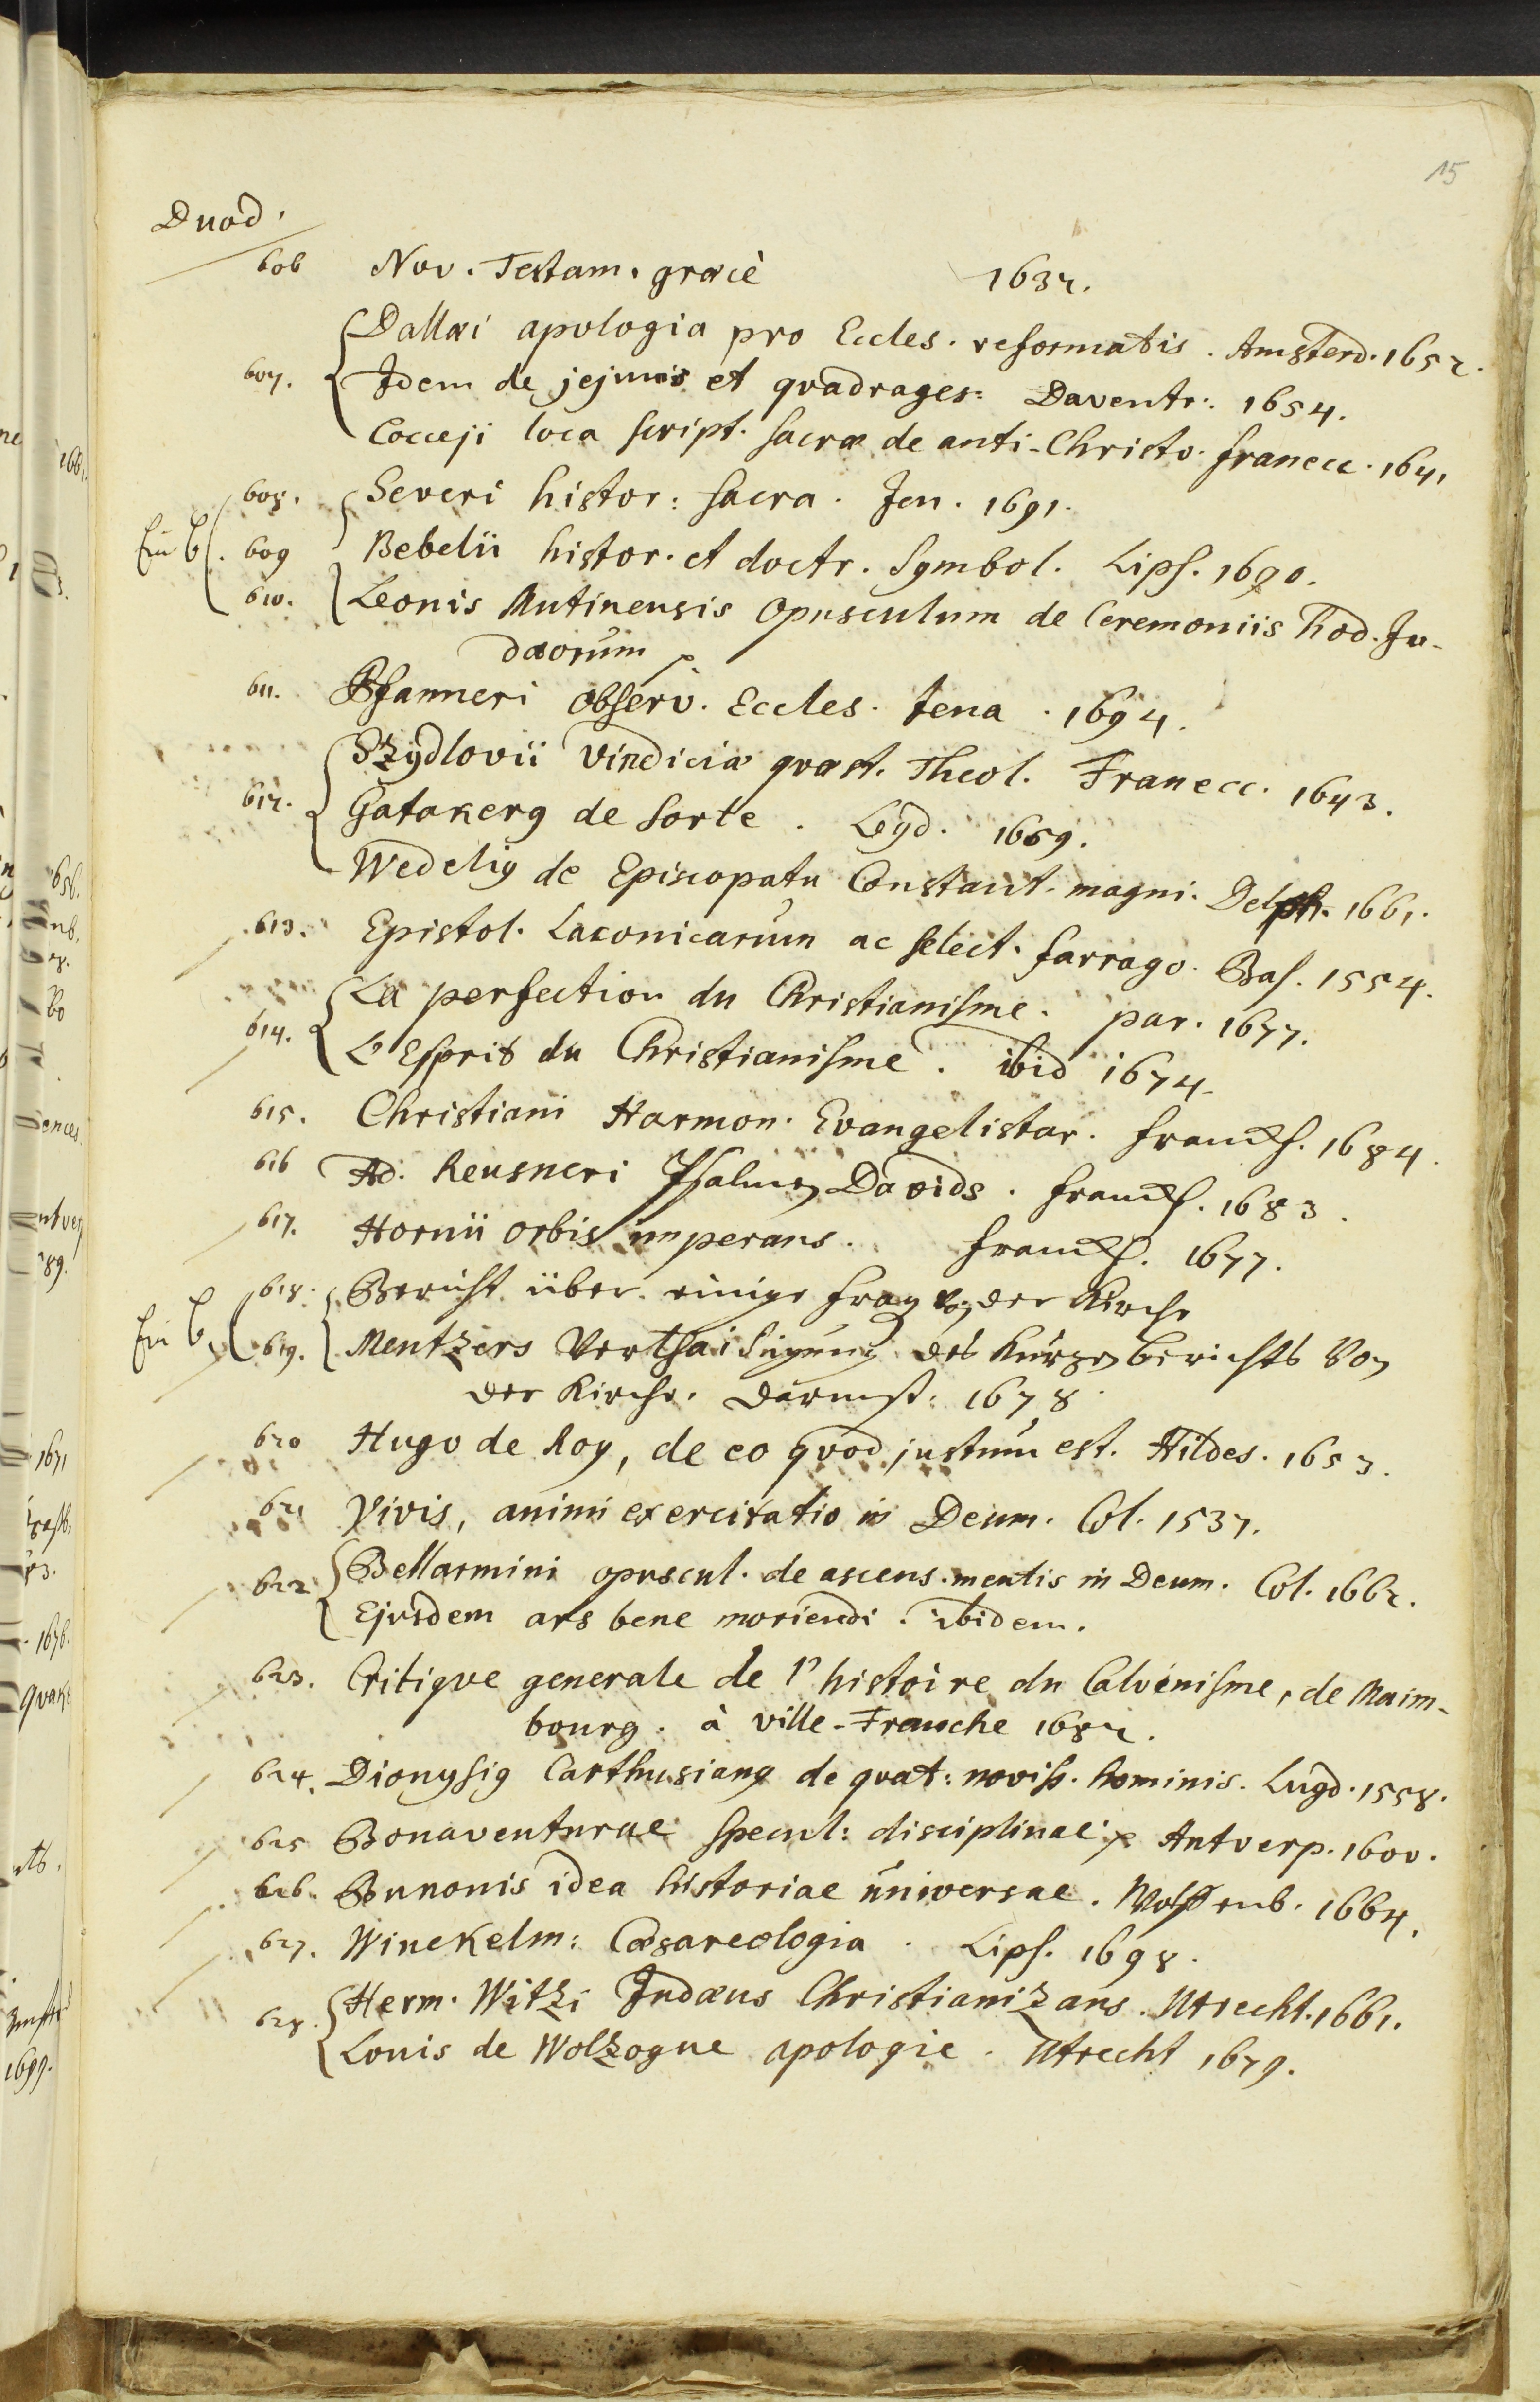 15
Duod.
606 Nov. Testam. græcè 1632.
Dallæi apologia pro Eccles. reformatis. Amsterd. 1652.
607. Idem de jejuniis et qvadrages: Daventr. 1654.
Cocceji loca script. sacræ de anti-Christo. franecc. 1641
608. Severi histor: sacra. Jen. 1691.
609 Bebelii histor. et doctr. Symbol. Lips. 1690.
610. Leonis Mutinensis Opusculum de Ceremoniis hod. Ju-
dæorum
611. Pfanneri observ. Eccles. Jena. 1694.
Szydlovii vindiciæ qvæst. Theol. Franecc. 1643.
612. Gatakerus de sorte. Leyd. 1669.
Wedelius de Episcopatu Constant. magni. Delph. 1661.
613. Epistol. Laconicarum ac select. farrago. Bas. 1554.
La perfection du Christianisme. par. 1677.
614. L'Esprit du Christianisme. ibid 1674.
615. Christiani Harmon. Evangelistar. franckf. 1684.
616 Ad. Reusneri Psalmen Davids. franckf. 1683.
617. Hornii orbis imperans. franckf. 1677.
618. Bericht über einige fragen von der Kirche
619. Mentzers Verthaidigung des Kurzen berichts Von
der Kirche. Darmst: 1678.
620 Hugo de Roy, de eo qvod justum est. Hildes. 1653.
621 Vivis, animi exercitatio in Deum. Col. 1537.
622 Bellarmini opuscul. de ascens. mentis in Deum. Col. 1662.
Ejusdem ars bene moriendi. ibidem.
623. Critiqve generale de l'histoire du Calvenisme, de Maim-
bourg. à ville-Franche 1682.
624. Dionysius Carthusianus de qvat: noviss. hominis. Lugd. 1558.
625 Bonaventurae specul: disciplinae Antverp. 1600.
626. Bunonis idea historiae universae. Wolffenb. 1664.
627. Winckelm: Cæsareologia. Lips. 1698.
628. Herm. Witzi Judæus Christianizans. Utrecht. 1661.
Louis de Wolzogue apologie. Utrecht 1679.